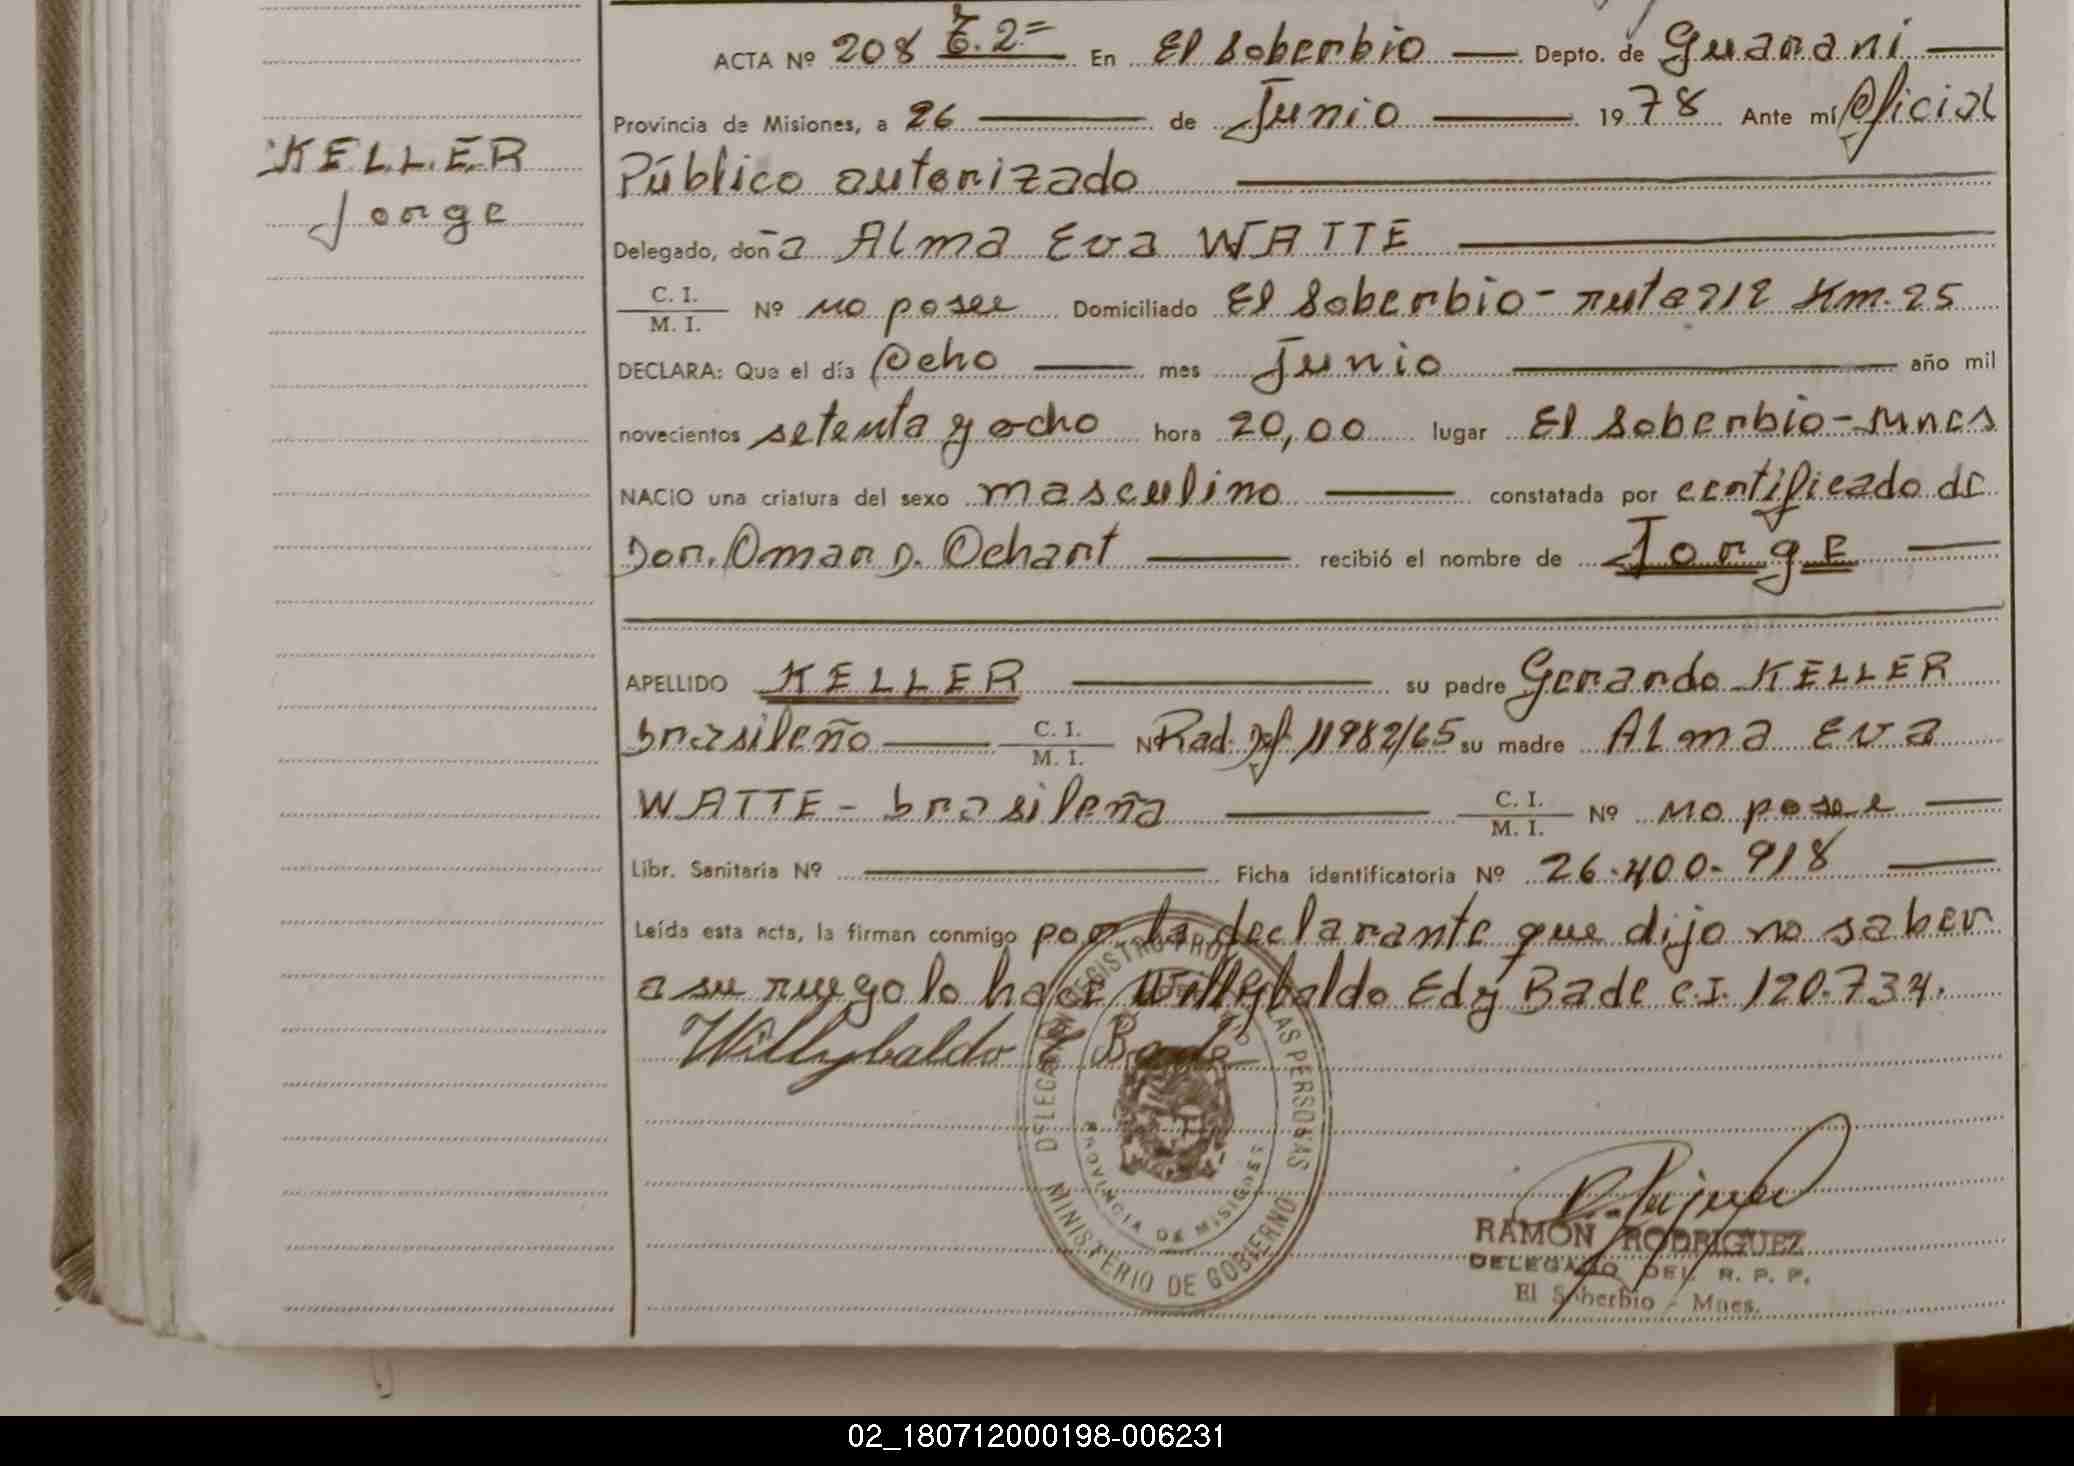 KELLER
Jorge
ACTA Nº 208 T. 2= En El Soberbio Depto. de Guarani
Provincia de Misiones, a 26 de Junio 1978 Ante mí Oficial
Público autorizado
Delegado, doña Alma Eva WATTE
C. I.
M. I. Nº no posee Domiciliado El Soberbio - ruta 212 Km. 25
DECLARA: Que el día Ocho mes Junio año mil
novecientos setenta y ocho hora 20,00 lugar El Soberbio - Mnes
NACIO una criatura del sexo masculino constatada por certificado de
Don. Omar D. Ochart recibió el nombre de Jorge
APELLIDO KELLER su padre Gerardo KELLER
brasileño C. I.
M. I. Nº Rad. Def. 11982/65 su madre Alma Eva
WATTE - brasileña C. I.
M. I. Nº no posee
Libr. Sanitaria Nº Ficha identificatoria Nº 26.400.918
Leída esta acta, la firman conmigo por la declarante que dijo no saber
a su ruego lo hace Willybaldo Edy Bade C.I. 120.734.
Willybaldo E Bade
DELEGA REGISTRO PRO LAS PERSONAS
PROVINCIA DE MISIONES
MINISTERIO DE GOBIERNO
RAMON RODRIGUEZ
DELEGADO DEL R. P. P.
El Soberbio - Mnes.
02_180712000198-006231